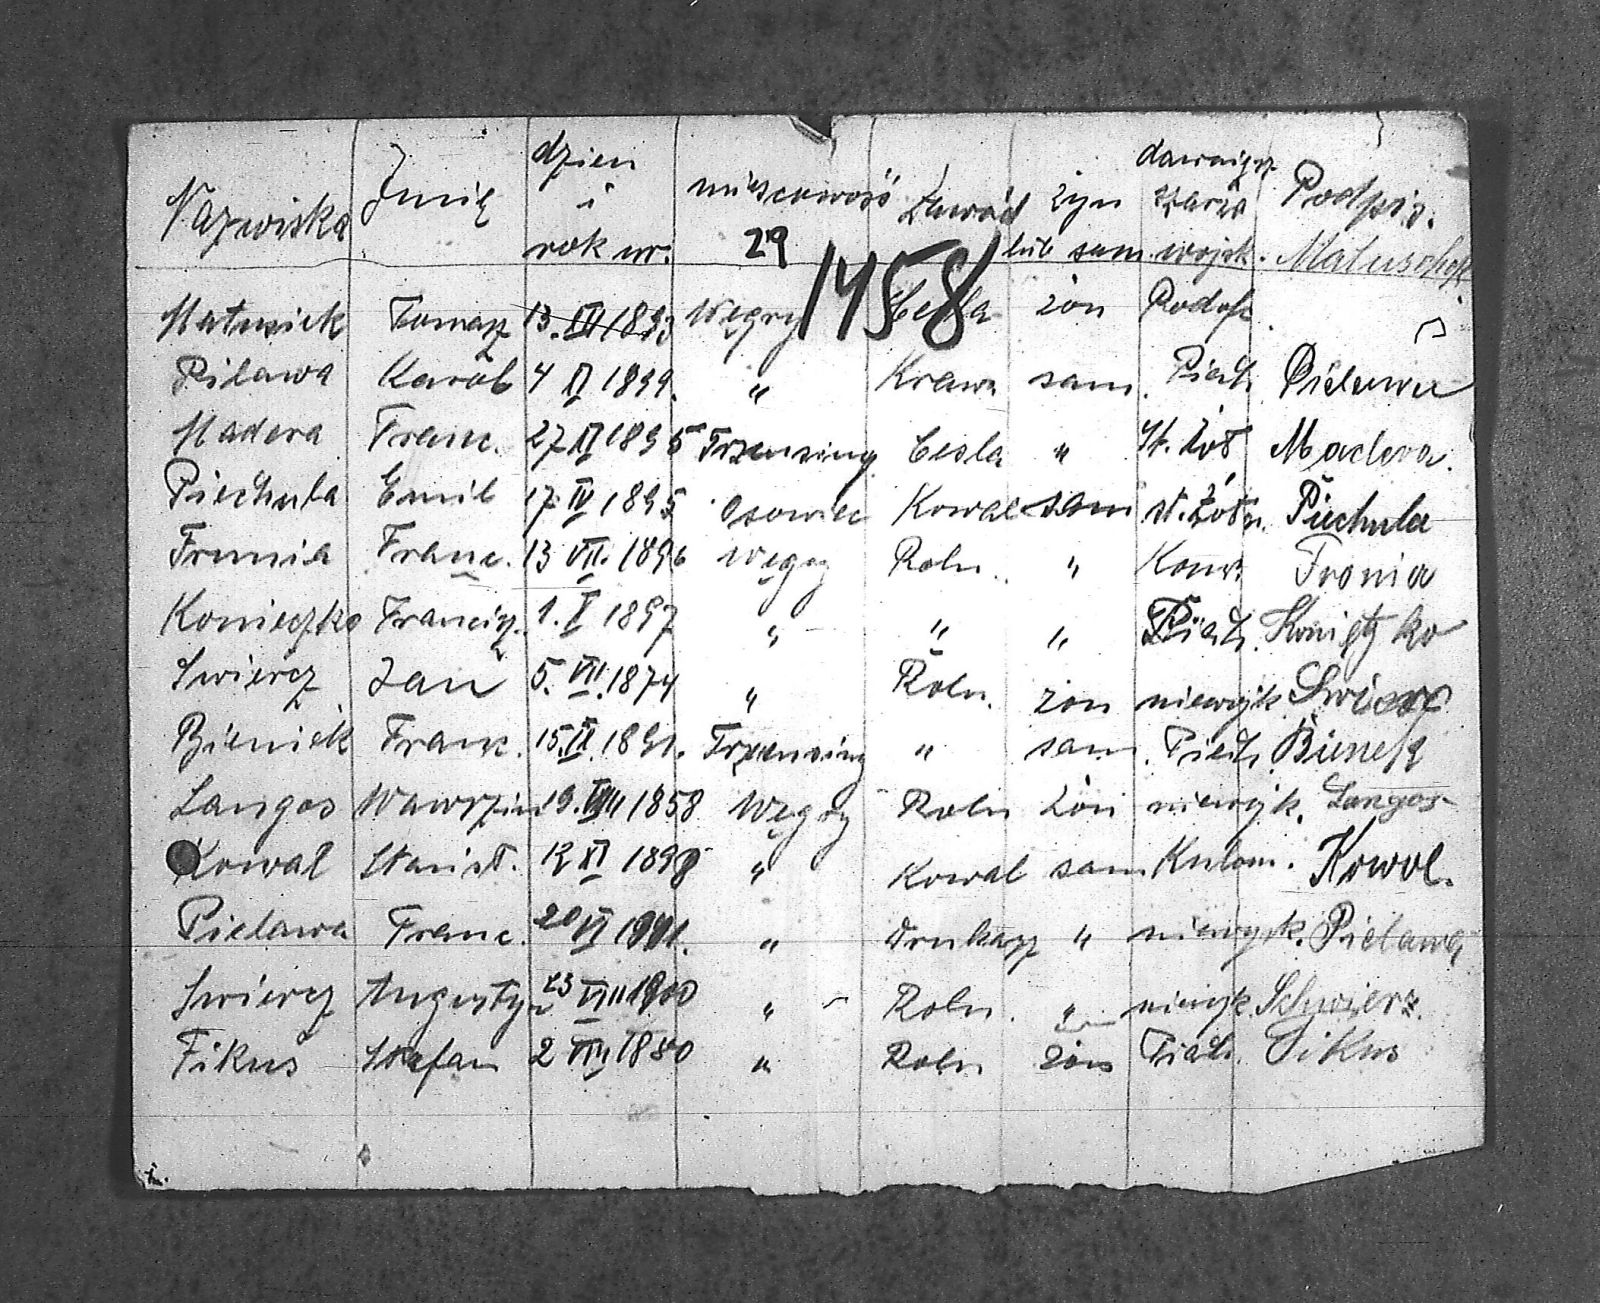 Nazwiska Imię dzien i rok ur. miescowość Zawód żyn lub sam. wojsk. Podpis.
29 1458
Matusiek Tomasz 13. 1893 Węgry Cesla żon Podof. Matuschek
Pilawa Karol 4 XI 1899. " Kraw. sam. Piech. Pielawa
Madera Franc. 27 XI 1895 Trzensiny Cesla " st. żoł Madera.
Piechula Emil 17 IV 1895 Osowiec Kowal sam st. żołn. Piechula
Fronia Franc. 13 VII. 1896 Węgry Roln. " Fronia
Konieczko Francisz. 1. X 1897 " " " Piech. Konietzko
Swiercz Jan 5. VII. 1874 " Roln. żon niewojk Swiercz
Bieniek Franc. 15. IX. 1891. Trzensiny " sam. Piech. Bienek
Langos Wawrzin. 19. VIII 1858 Węgry Roln żon niewojk. Langos
Kowal Stanisł. 12 XI 1898 " Kowal sam Kulom. Kowol.
Pielawa Franc. 20 VI 1901. " Drukarz " niewojsk. Pielawa
Swiercz Augustyn 23 VIII 1900 " Roln. " niewojk Schwierz.
Fikus Stefan 2 VIII 1880 " Roln żon Piech. Fikus